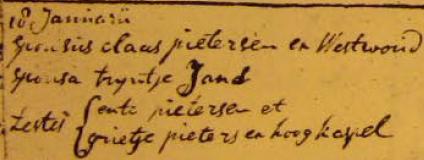 18 Januarii
sponsus claas pietersen en Westwoud
sponsa tryntje Jans
testes { ente pietersen et
grietje pieters en hoogkarspel